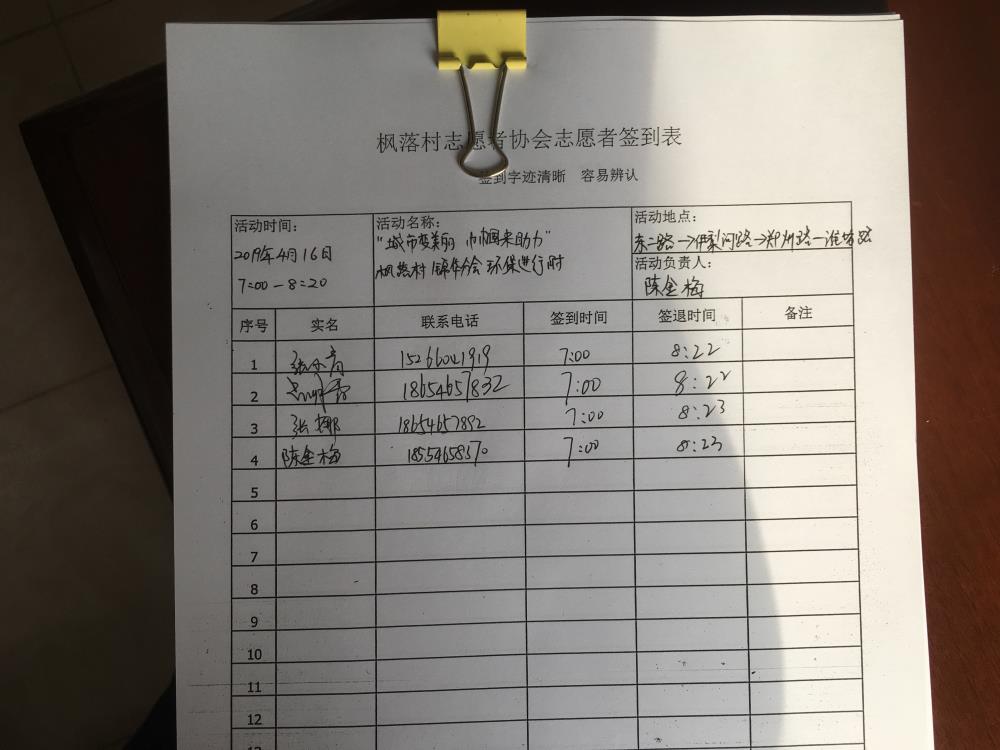 枫落村志愿者协会志愿者签到表
签到字迹清晰 容易辨认
活动时间：
2019年4月16日
7:00-8:20
活动名称：
"城市变美丽 巾帼来助力"
枫落村 分会 环保进行时
活动地点：
东二路→伊犁河路→郑州路→潍坊路
活动负责人：
陈金梅
序号 实名 联系电话 签到时间 签退时间 备注
1 15266041919 7:00 8:22
2 18654657832 7:00 8:22
3 张娜 18654657892 7:00 8:23
4 陈金梅 18554658370 7:00 8:23
5
6
7
8
9
10
11
12